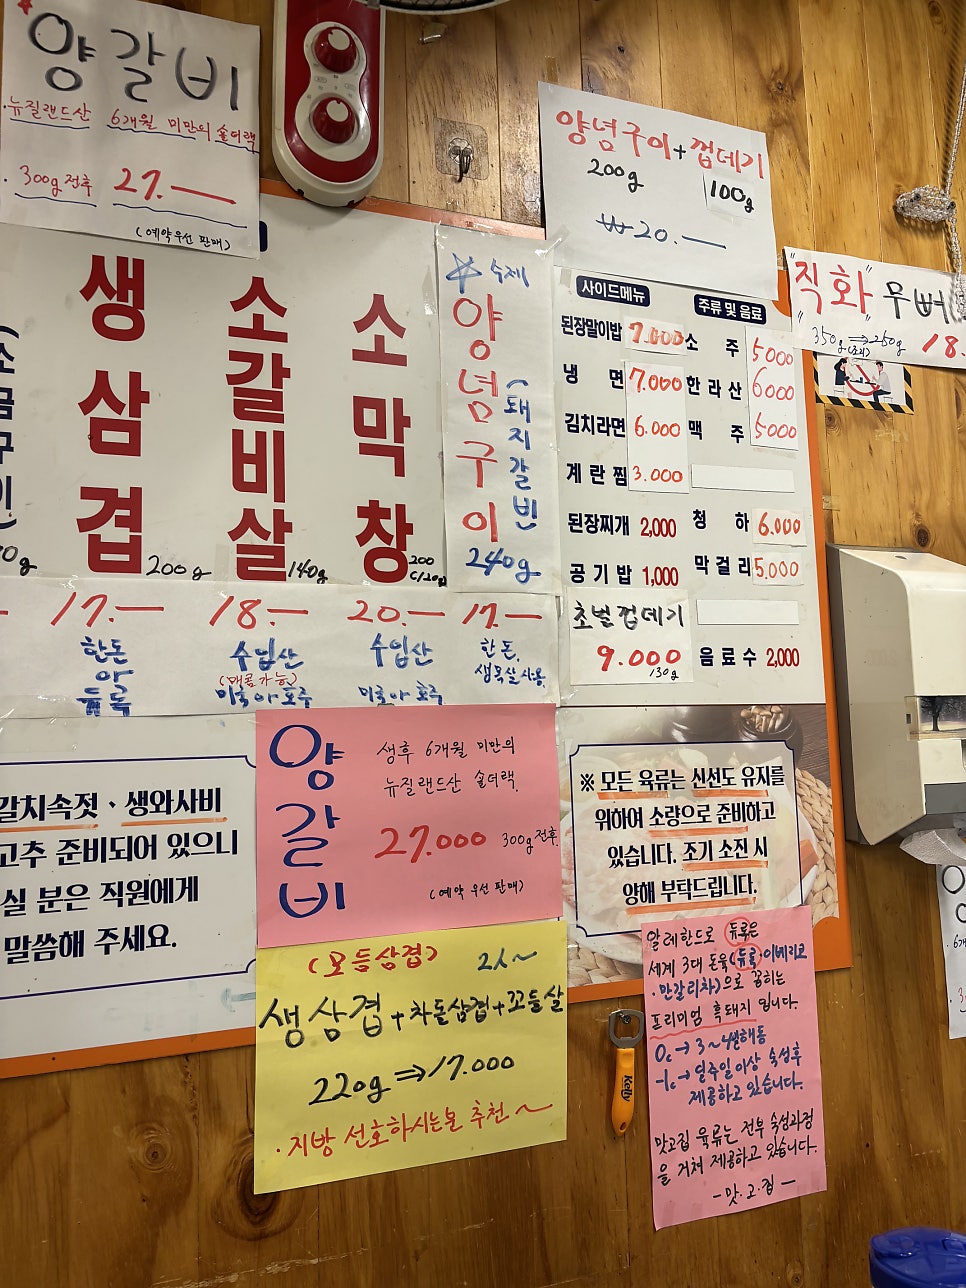 양갈비
· 뉴질랜드산 6개월 미만의 숄더랙
· 300g 전후 27.—
(예약우선 판매)
양념구이 + 껍데기
200g 100g
₩20.—
"직화" 무뼈
350g ⇒ 250g
18.
생삼겹 200g
17.—
한돈
아
듀록
소갈비살 140g
18.—
수입산
미국 아 호주
소막창 200
20.—
수입산
미국 아 호주
☆ 수제
양념구이
(돼지갈비)
240g
17.—
한돈.
생목살 사용.
사이드메뉴
된장말이밥 7.000
냉면 7.000
김치라면 6.000
계란찜 3.000
된장찌개 2,000
공기밥 1,000
초벌껍데기
9.000
130g
주류 및 음료
소주 5000
한라산 6000
맥주 5000
청하 6.000
막걸리 5.000
음료수 2,000
갈치속젓、생와사비
고추 준비되어 있으니
실 분은 직원에게
말씀해 주세요.
양갈비
생후 6개월 미만의
뉴질랜드산 숄더랙.
27.000 300g 전후.
(예약 우선 판매)
※ 모든 육류는 신선도 유지를
위하여 소량으로 준비하고
있습니다. 조기 소진 시
양해 부탁드립니다.
(모듬삼겹) 2人~
생삼겹+차돌삼겹+꼬들살
220g ⇒ 17.000
· 지방 선호하시는분 추천 ~
알레한드로 듀록은
세계 3대 돈육(듀록·이베리코
·만갈리차)으로 꼽히는
프리미엄 흑돼지 입니다.
0c → 3~4일해동
-1c → 일주일이상 숙성후
제공하고 있습니다.
맛고집 육류는 전부 숙성과정
을 거쳐 제공하고 있습니다.
- 맛.고.집 -
Kelly